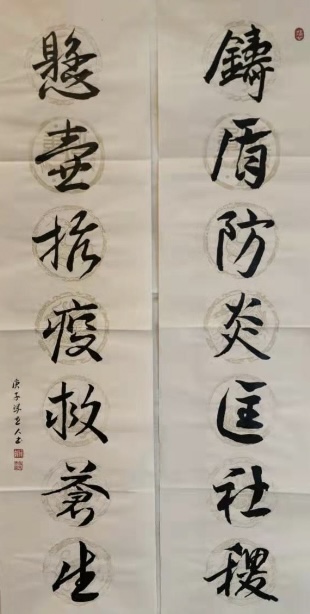 鑄盾防炎匡社稷
懸壺抗疫救蒼生
庚子